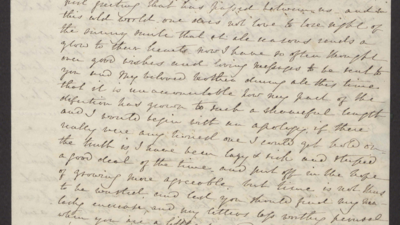 feeling that has passed between us and in
this old world one does not love to lose sight of
the sunny smile that at all seasons sends a
glow to their hearts now I have so often thought
over good wishes and loving messages to be sent to
you and my beloved Mother during all this time
that it is unaccountable how my part of the
defection has grown to such a shameful length
and I would begin with an apology if there
really were any honest one I could get hold on
the truth is I have been lazy & sick and stupid
a good deal of the time, and put off in the hope
of growing more agreeable, but time is not thus
to be and lest you should find my
increase, and my letters less worthy perusal
when you are a